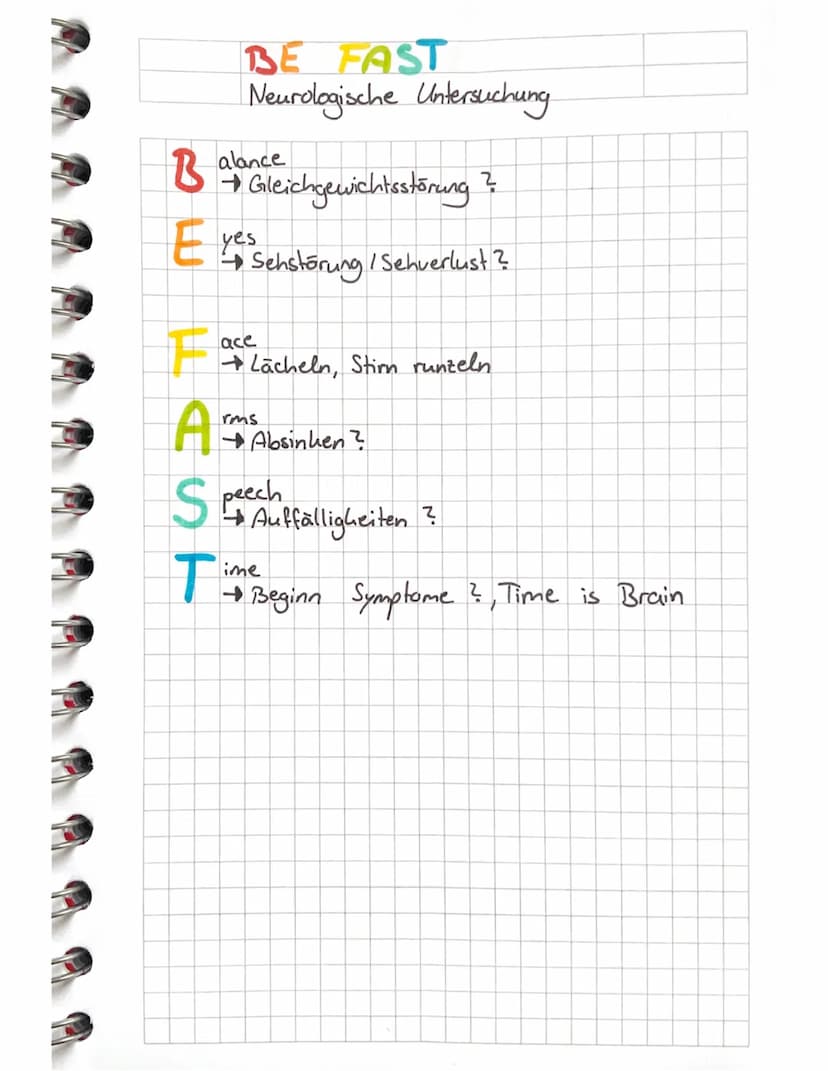 BE FAST
Neurologische Untersuchung
Balance
→ Gleichgewichtsstörung ?
Eyes
→ Sehstörung / Sehverlust ?
Face
→ Lächeln, Stirn runzeln
Arms
→ Absinken ?
Speech
→ Auffälligkeiten ?
Time
→ Beginn Symptome ?, Time is Brain